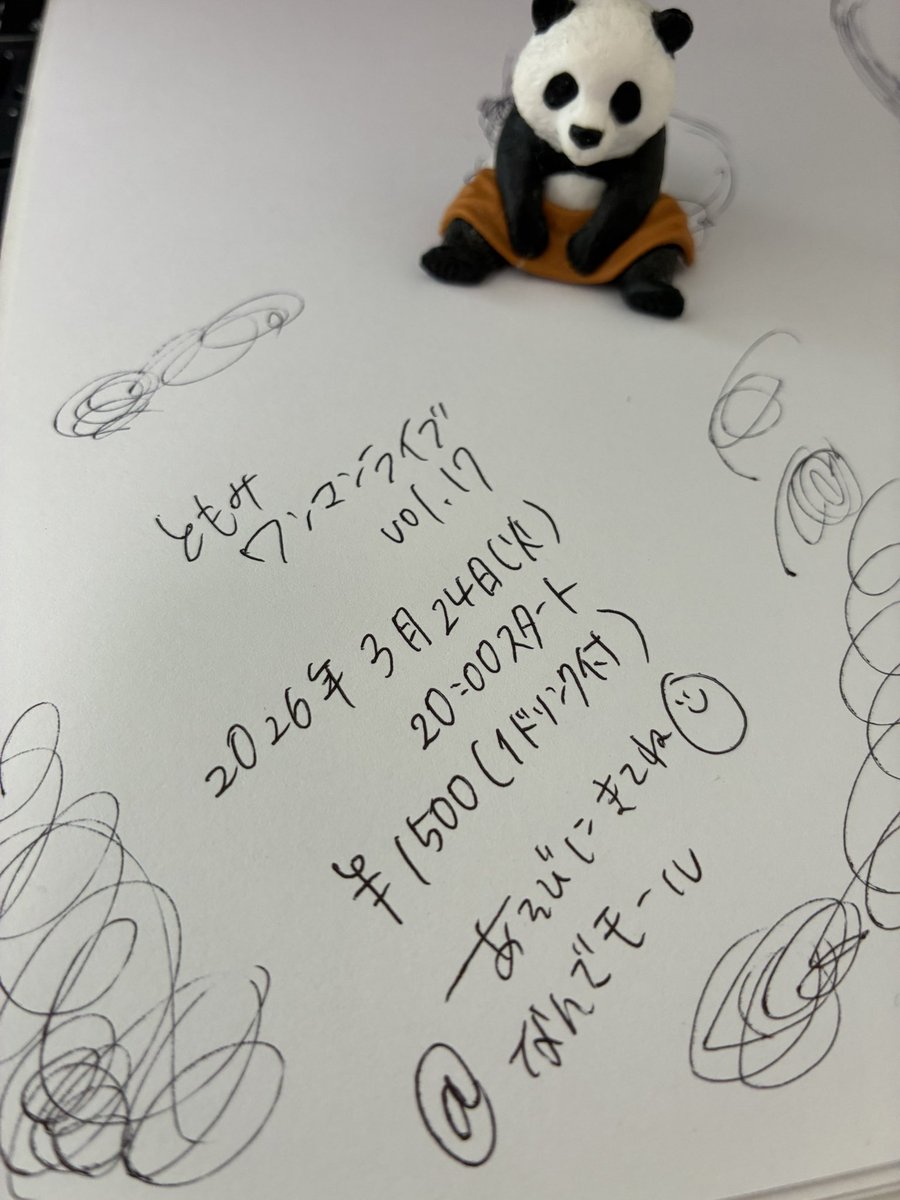 ともみ
ワンマンライブ
vol.17
2026年3月24日(火)
20:00スタート
¥1500(1ドリンク付)
あそびにきてね
@なんでモール